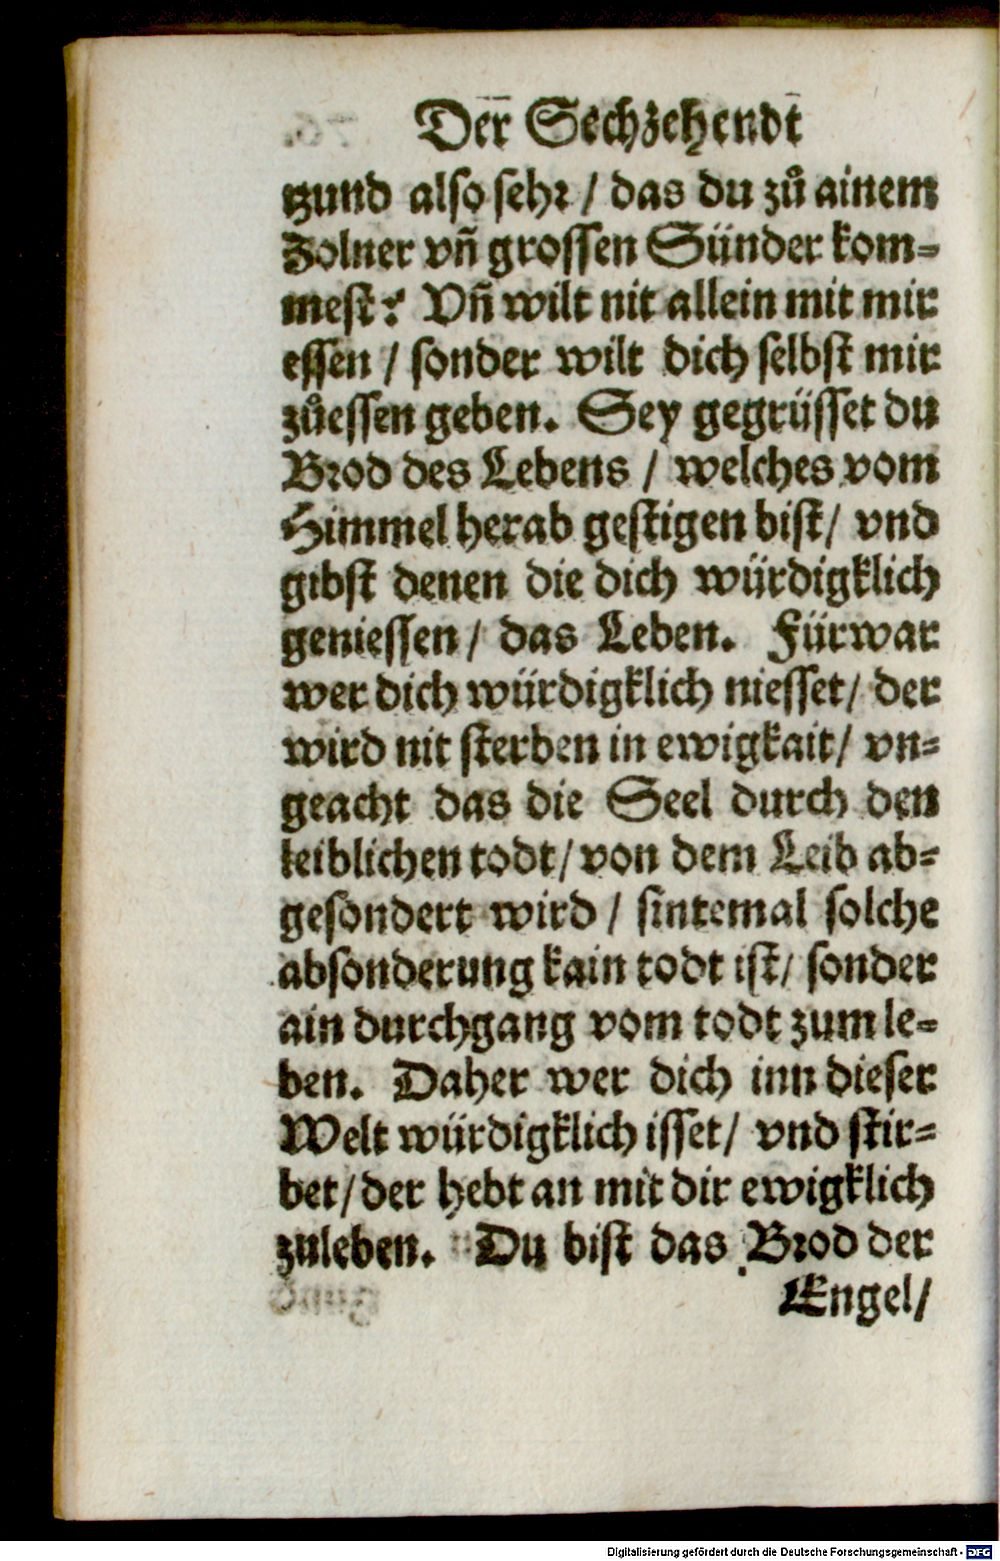 Der Sechzehendt
tzund also sehr / das du zů ainem
Zolner vñ grossen Sünder kom=
mest? Vñ wilt nit allein mit mir
essen / sonder wilt dich selbst mir
zůessen geben. Sey gegrüsset du
Brod des Lebens / welches vom
Himmel herab gestigen bist / vnd
gibst denen die dich würdigklich
geniessen / das Leben. Fürwar
wer dich würdigklich niesset / der
wird nit sterben in ewigkait / vn=
geacht das die Seel durch den
leiblichen todt / von dem Leib ab=
gesondert wird / sintemal solche
absonderung kain todt ist / sonder
ain durchgang vom todt zum le=
ben. Daher wer dich inn dieser
Welt würdigklich isset / vnd stir=
bet / der hebt an mit dir ewigklich
zuleben. Du bist das Brod der
Engel /
Digitalisierung gefördert durch die Deutsche Forschungsgemeinschaft - DFG